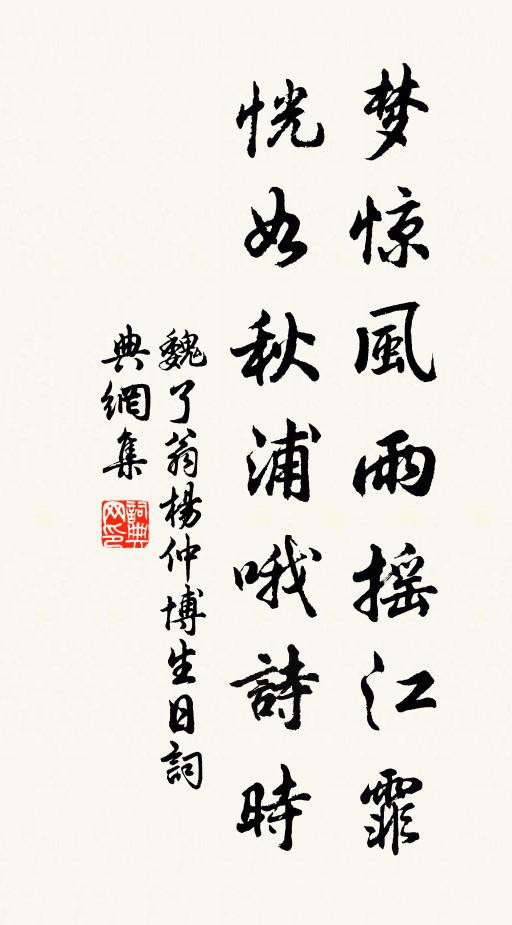 梦惊風雨摇江霏
恍如秋浦哦詩時
魏了翁楊仲博生日詞
典網集
詞典网印